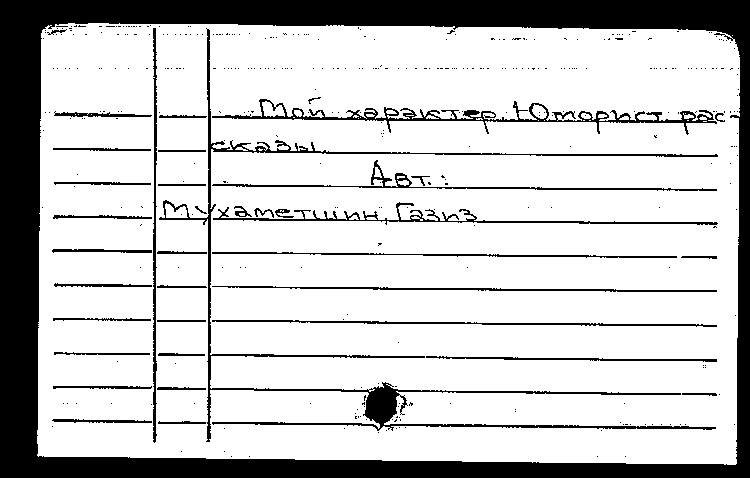 Мой характер. Юморист. рас-
сказы.
Авт.:
Мухаметшин, Газиз